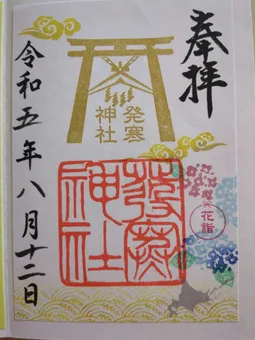 奉拝
発寒
神社
発寒
神社
花詣
令和五年八月十二日